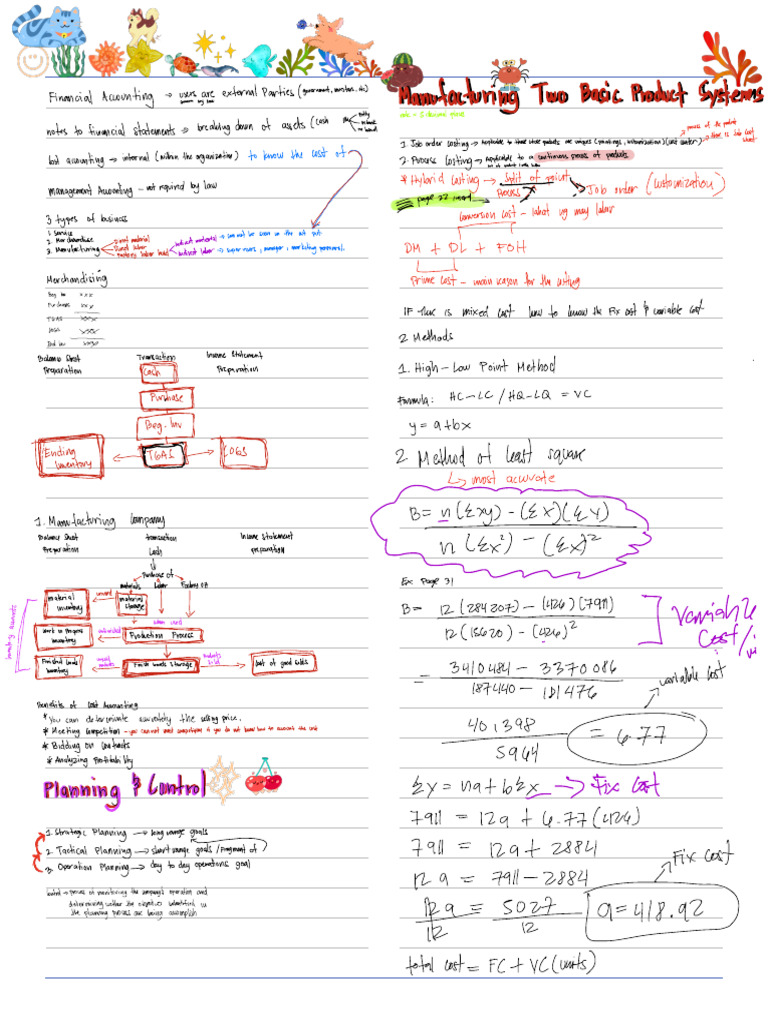 Financial Accounting → users are external Parties (government, investors, etc)
notes to financial statements → breaking down of assets (cash
cost accounting → internal (within the organization) to know the cost of
Management Accounting – not required by law
3 types of business
1. Service
2. Merchandise
3. Manufacturing
direct material
Direct labor
Factory labor head
indirect material → cannot be seen in the out put
indirect labor → supervisors, manager, marketing personnel
Merchandising
Beg. Inv xxx
Purchases xxx
TGAS xxxx
COGS xxxx
End Inv xxxx
Balance Sheet Transaction Income Statement
Preparation Preparation
Cash
Purchase
Beg. Inv
Ending Inventory ← TGAS → COGS
1. Manufacturing Company
Balance Sheet transaction Income Statement
Preparation Cash preparation
Purchase of
materials Labor Factory OH
material inventory unused materials storage
when used
Work in Progress inventory unfinished Production Process
Finished Goods Inventory unsold products Finish Goods Storage products sold Cost of good sold
Inventory accounts
Benefits of Cost Accounting
* You can determine accurately the selling price.
* Meeting Competition – you can not meet competitions if you do not know how to account the cost
* Bidding on Contracts
* Analyzing Profitability
Planning & Control
1. Strategic Planning → long range goals
2. Tactical Planning → short range goals / Fragment of
3. Operation Planning → day to day operations goal
Control → process of monitoring the company's operation and
determining wither the objectives identified in
the planning process are being accomplish
Manufacturing Two Basic Product Systems
1. Job order costing → Applicable to those whose products are uniques (paintings, customization)
2. Process Costing → Applicable to a continuous process of products
* Hybrid Costing → Split of point
Process Job order (customization)
page 22 
Conversion cost –
DM + DL + FOH
Prime cost – main reason for the costing
IF there is mixed cost how to know the Fix cost & variable cost
2 Methods
1. High – Low Point Method
Formula: HC – LC / HQ – LQ = VC
y = a+bx
2. Method of least square
↳ most accurate
B = n(Σxy) – (Σx)(Σy)
n(Σx²) – (Σx)²
Ex: Page 31
B = 12(284207) – (426)(7911)
12(15620) – (426)²
variable cost/
= 3410484 – 3370086
187440 – 181476
variable cost
40,398
5964
= 6.77
Σy = na + bΣx → Fix cost
7911 = 12a + 6.77(426)
7911 = 12a + 2884
12a = 7911 – 2884
Fix cost
12a = 5027
12 12
a = 418.92
total cost = FC + VC(units)